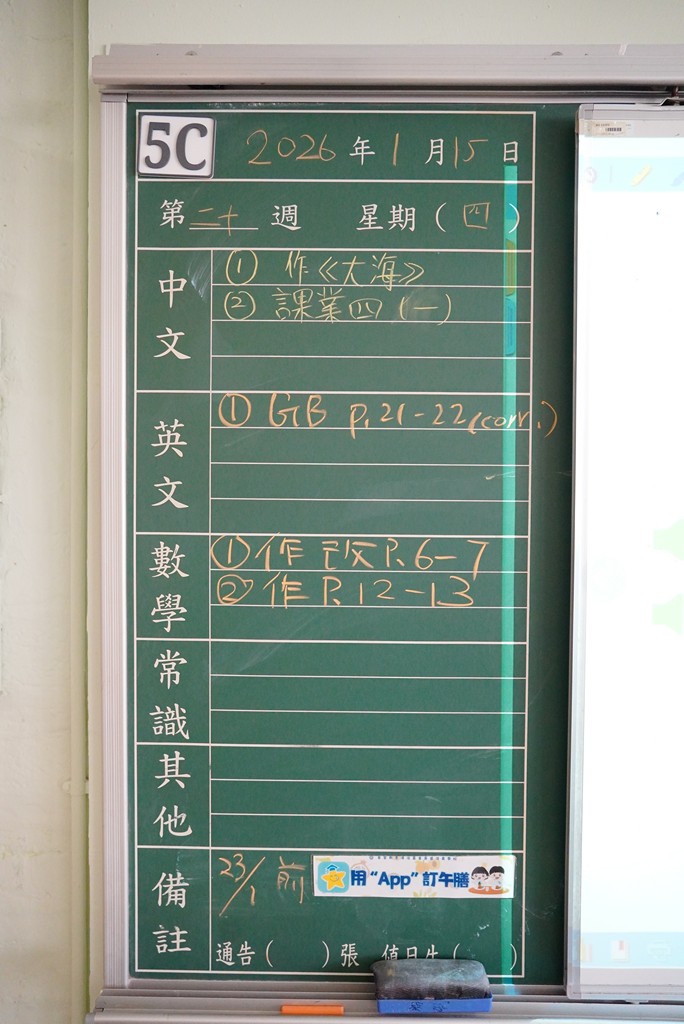 5C 2026年1月15日
第二十週 星期(四)
中文
① 作《大海》
② 課業四(一)
英文
① GB p.21-22(corr.)
數學
① 作改P.6-7
② 作P.12-13
常識
其他
備註
23/1 前
用“App”訂午膳
通告( )張 值日生( )